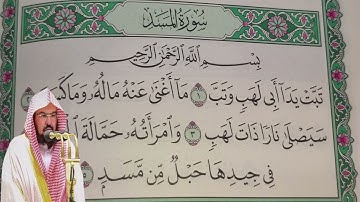 سُورَةُ المَسَدِ
بِسْمِ اللَّهِ الرَّحْمَٰنِ الرَّحِيمِ
تَبَّتْ يَدَا أَبِي لَهَبٍ وَتَبَّ ١ مَا أَغْنَىٰ عَنْهُ مَالُهُ وَمَا كَسَ
سَيَصْلَىٰ نَارًا ذَاتَ لَهَبٍ ٣ وَامْرَأَتُهُ حَمَّالَةَ
فِي جِيدِهَا حَبْلٌ مِّن مَّسَدٍ ٥